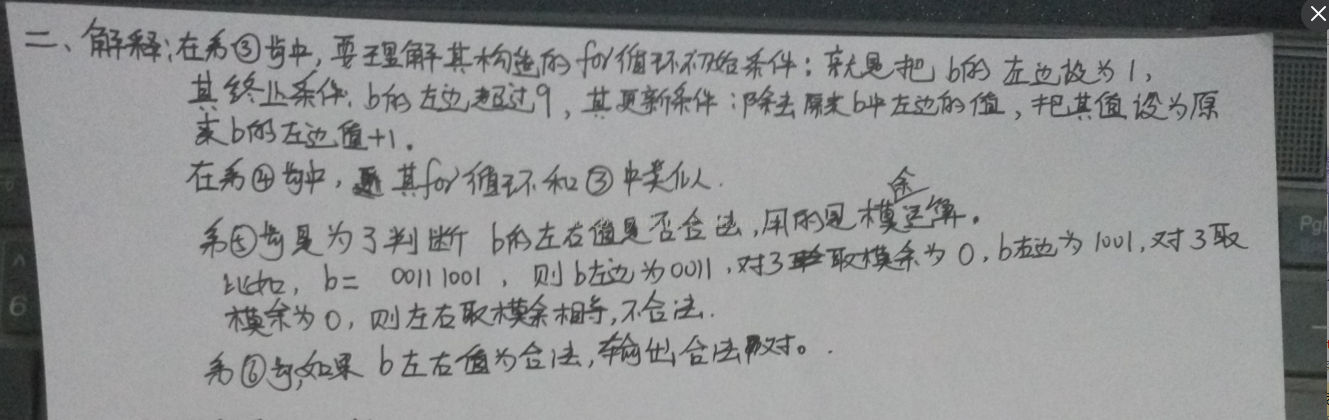 二、解释:在第③句中,要理解其构造的for循环初始条件:就是把b的左边设为1,
其终止条件,b的左边超过9,其更新条件:除去原来b中左边的值,把其值设为原
来b的左边值+1。
在第④句中,其for循环和③中类似.
第⑤句是为了判断b的左右值是否合法,用的是模余运算。
比如,b= 00111001,则b左边为0011,对3取模余为0,b右边为1001,对3取
模余为0,则左右取模余相等,不合法.
第⑥句,如果b左右值为合法,输出合法对。.
Pg
6